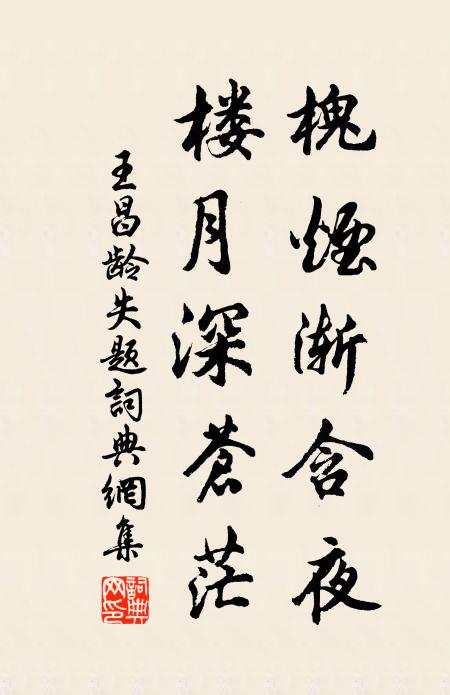 槐烟渐含夜
楼月深苍茫
王昌龄失题詞典網集
詞典网印